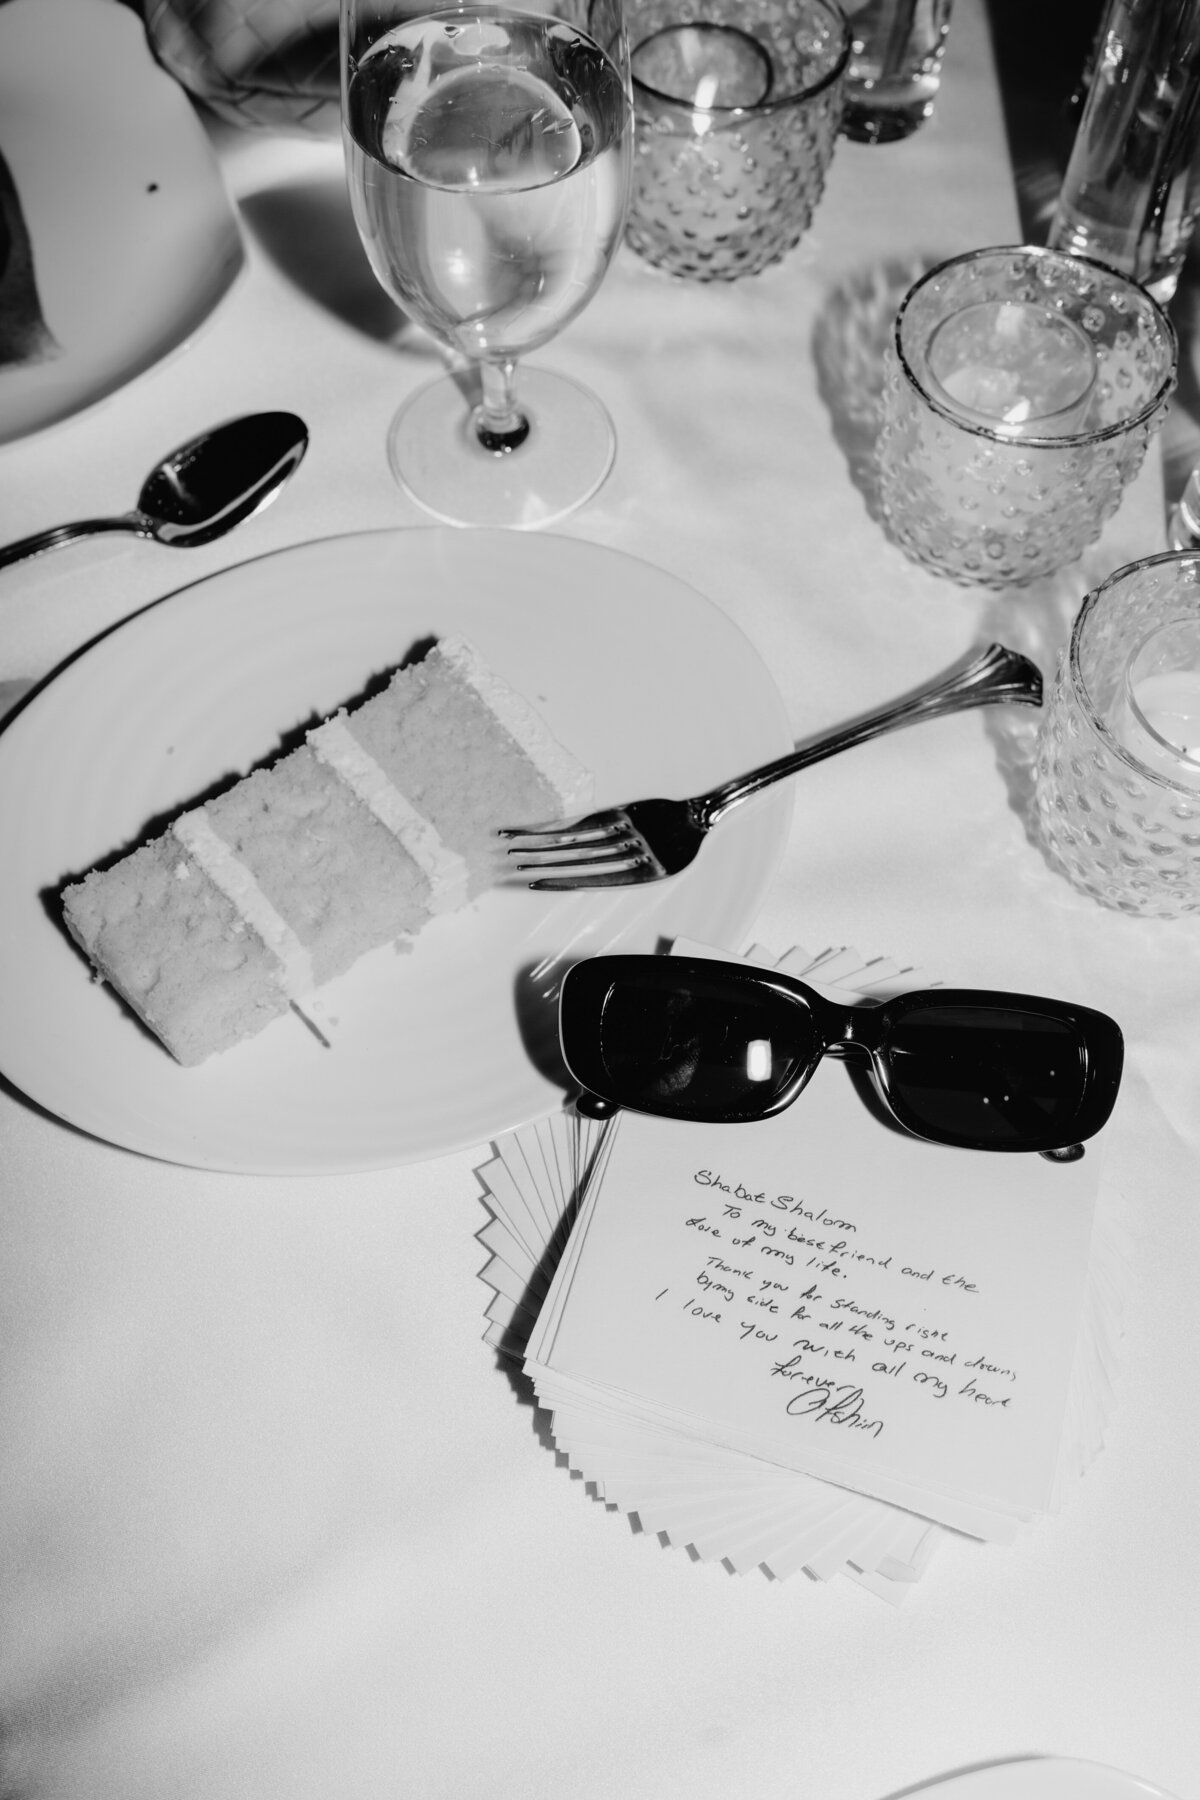 Shabat Shalom
To my best friend and the
love of my life.
Thank you for standing right
by my side for all the ups and downs
I love you with all my heart
forever
Afshin